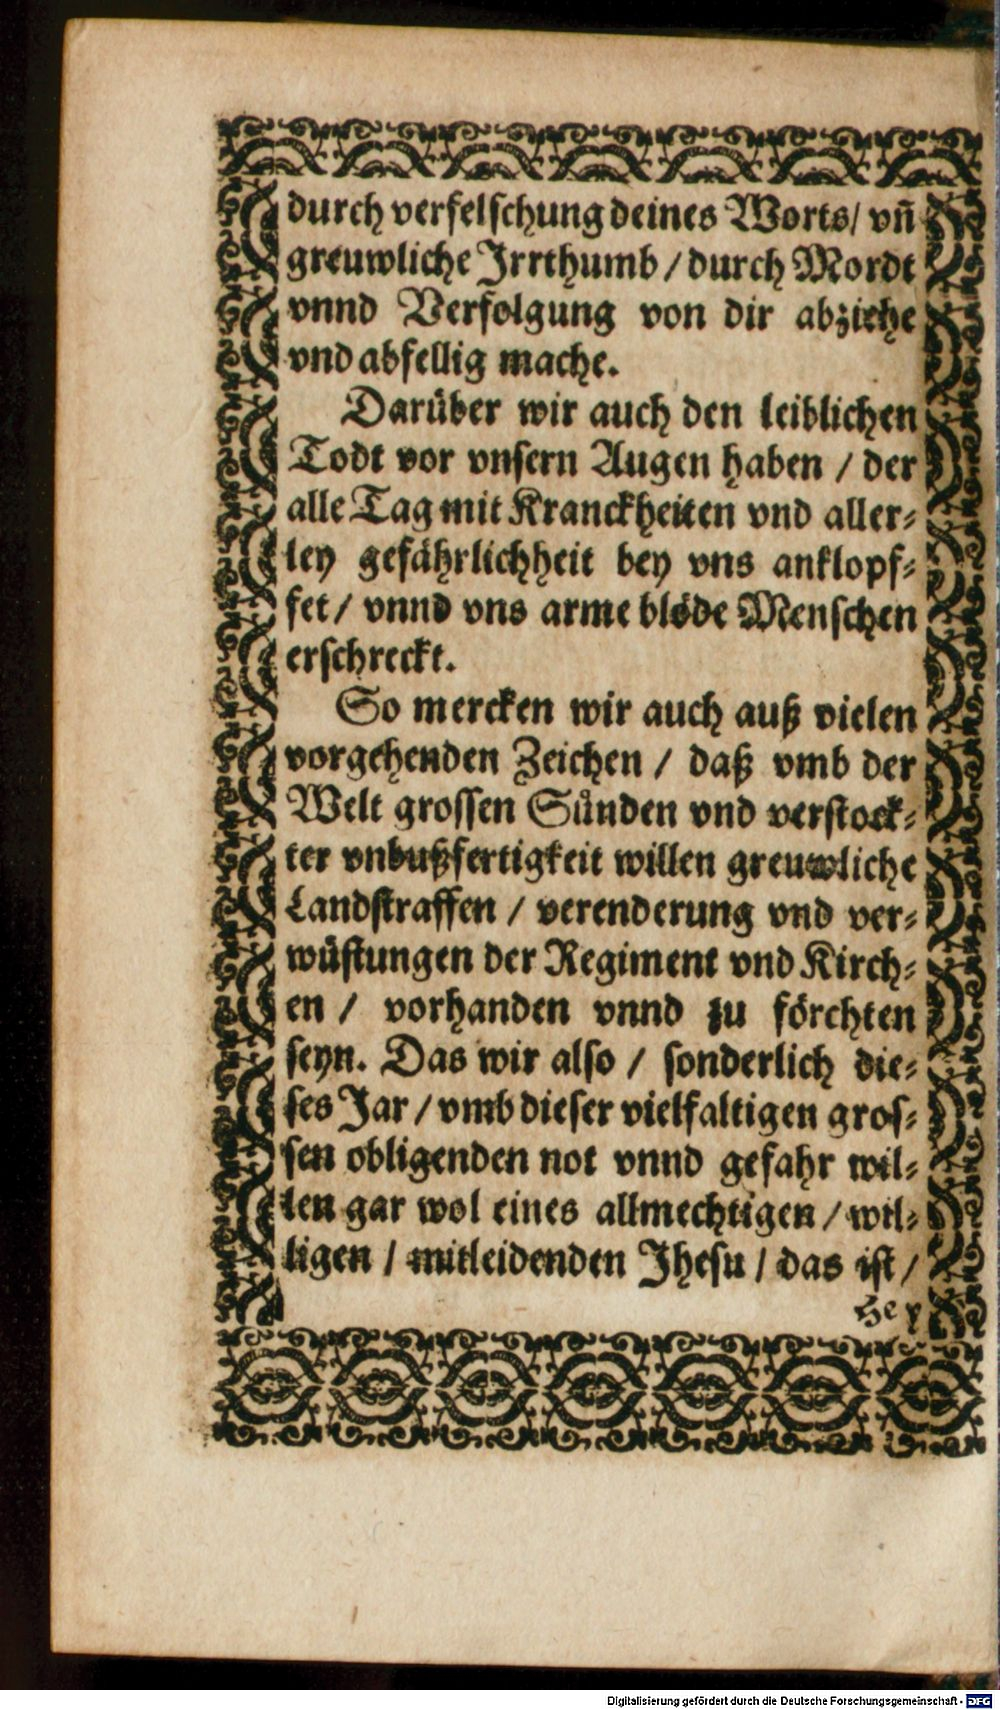 durch verfelschung deines Worts/ vñ
greuwliche Irrthumb / durch Mordt
vnnd Verfolgung von dir abziehe
vnd abfellig mache.
Darüber wir auch den leiblichen
Todt vor vnsern Augen haben / der
alle Tag mit Kranckheiten vnd aller-
ley gefährlichheit bey vns anklopf-
fet / vnnd vns arme blöde Menschen
erschreckt.
So mercken wir auch auß vielen
vorgehenden Zeichen / daß vmb der
Welt grossen Sünden vnd verstock-
ter vnbußfertigkeit willen greuwliche
Landstraffen / verenderung vnd ver-
wüstungen der Regiment vnd Kirch-
en / vorhanden vnnd zu förchten
seyn. Das wir also / sonderlich die-
ses Jar / vmb dieser vielfaltigen gros-
sen obligenden not vnnd gefahr wil-
len gar wol eines allmechtigen / wil-
ligen / mitleidenden Jhesu / das ist /
Digitalisierung gefördert durch die Deutsche Forschungsgemeinschaft - DFG